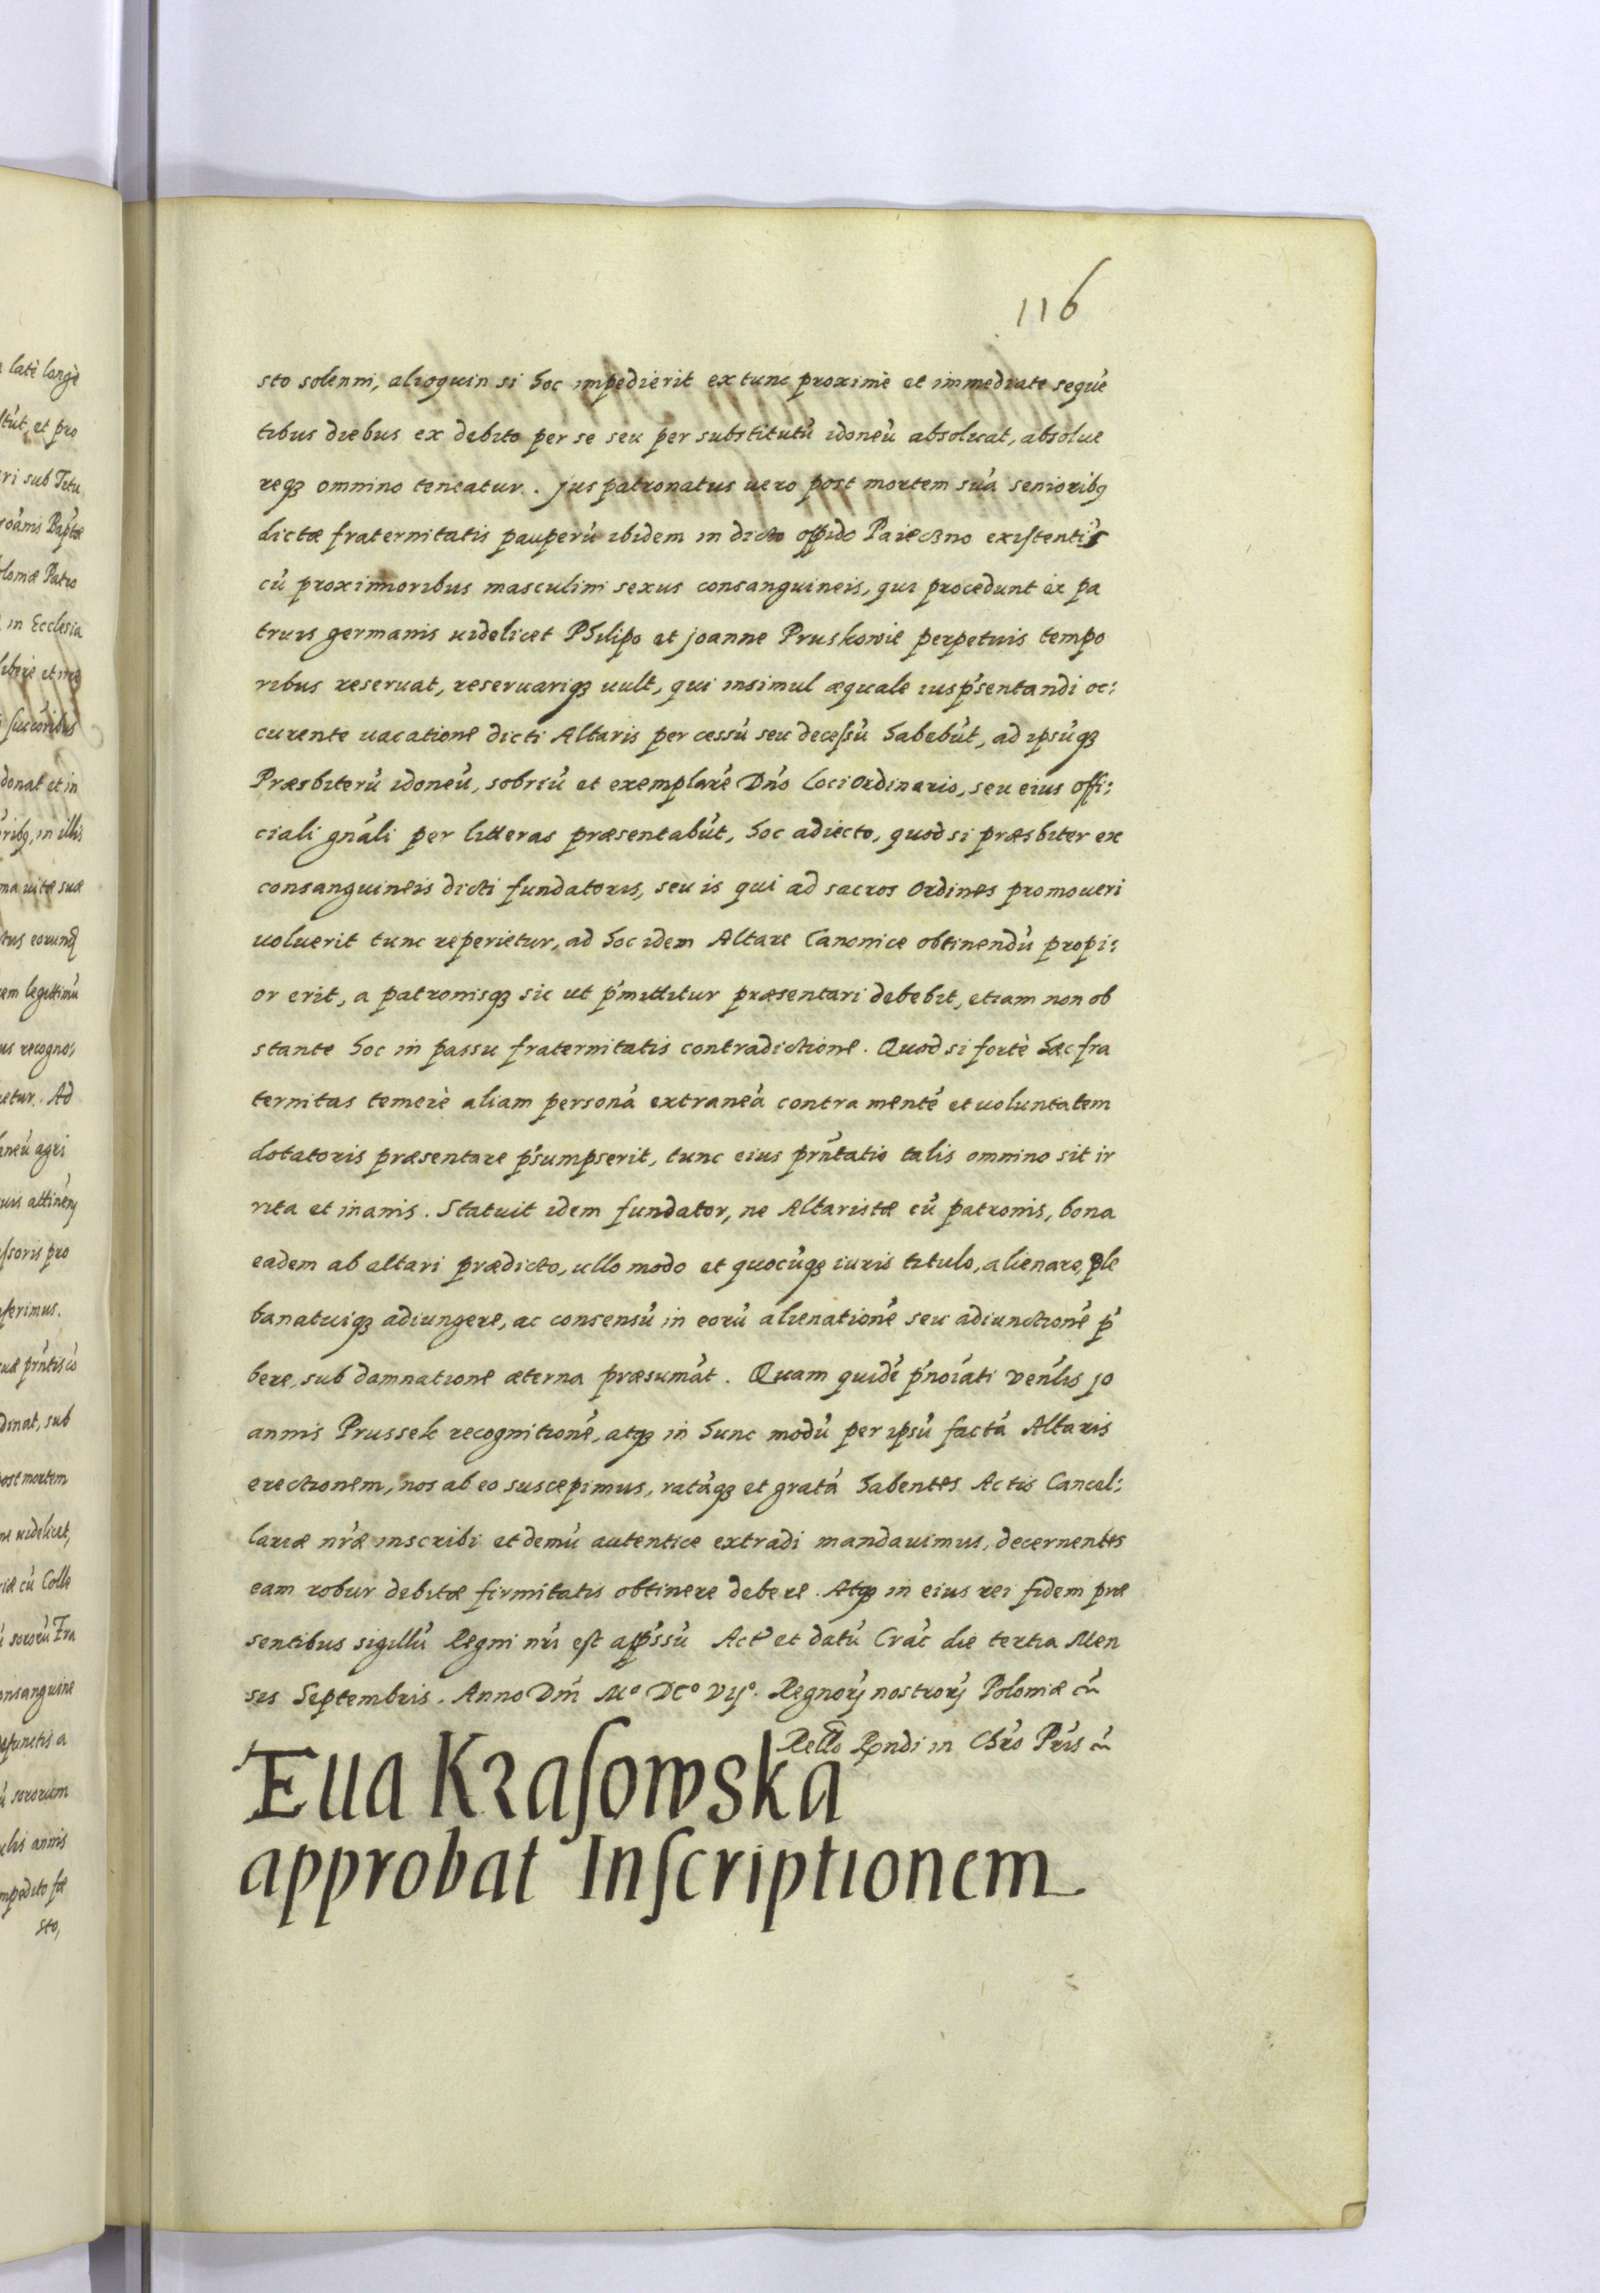 116
sto solenni, alioquin si hoc impedierit ex tunc proximè et immediate seque͂
tibus diebus ex debito per se seu per substitutu͂ idoneu͂ absoluat, absolue
req₃ omnino teneatur. Jus patronatus uero post mortem sua͂ senioribꝫ
dictæ fraternitatis pauperu͂ ibidem in dicto oppido Paieczno existentis
cu͂ proximioribus masculini sexus consanguineis, qui procedunt ex pa
truis germanis uidelicet Philipo et Joanne Pruskowie perpetuis tempo
ribus reseruat, reseruariq₃ uult, qui insimul æquale ius p͂sentandi oc:
curente uacatione dicti Altaris per cessu͂ seu decessu͂ habebu͂t, ad ipsu͂q₃
Præsbiteru͂ idoneu͂, sobriu͂ et exemplare͂ Dn͂o Loci Ordinario, seu eius offi:
ciali gn͂ali per litteras præsentabu͂t, hoc adiecto, quod si præsbiter ex
consanguineis dicti fundatoris, seu is qui ad sacros Ordines promoueri
uoluerit tunc reperietur, ad hoc idem Altare Canonice obtinendu͂ propi:
or erit, a patronisq₃ sic ut p͂mittitur præsentari debebit, etiam non ob
stante hoc in passu fraternitatis contradictione. Quod si fortè hæc fra
ternitas temerè aliam persona͂ extranea͂ contra mente͂ et uoluntatem
dotatoris præsentare p͂sumpserit, tunc eius prn͂tatio talis omnino sit ir
rita et inanis. Statuit idem fundator, ne Altaristæ cu͂ patronis, bona
eadem ab altari prædicto, ullo modo et quocu͂q₃ iuris titulo, alienare, ple
banatuiq₃ adiungere, ac consensu͂ in eoru͂ alienatione͂ seu adiunctione͂ p͂
bere, sub damnatione æterna præsuma͂t. Quam quide͂ p͂noi͂ati Ven͂lis Jo
annis Prussek recognitione͂, atq₃ in hunc modu͂ per ipsu͂ facta͂ Altaris
erectionem, nos ab eo suscepimus, rata͂q₃ et grata͂ habentes Actis Cancel:
lariæ nr͂æ inscribi et demu͂ autentice extradi mandauimus, decernentes
eam robur debitæ firmitatis obtinere debere. Atq₃ in eius rei fidem præ
sentibus sigillu͂ Regni nr͂i est app͂ssu͂ Act͂ et datu͂ Crac͂ die tertia Men
sis Septembris. Anno Dn͂i Mº DCº VIJº. Regnorꝫ nostrorꝫ Poloniæ c͂
Rel͂lo Rn͂di in Chr͂o Pr͂is c͂
Eua Krasowska
approbat Inscriptionem